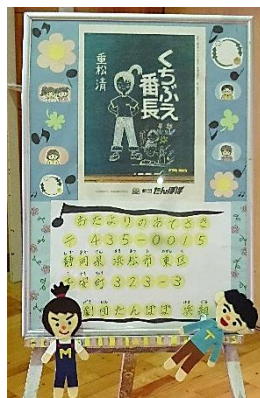 くちぶえ番長
重松清
劇団たんぽぽ
おたよりのあてさき
〒435-0015
静岡県浜松市東区
子安町323-3
劇団たんぽぽ
M
T